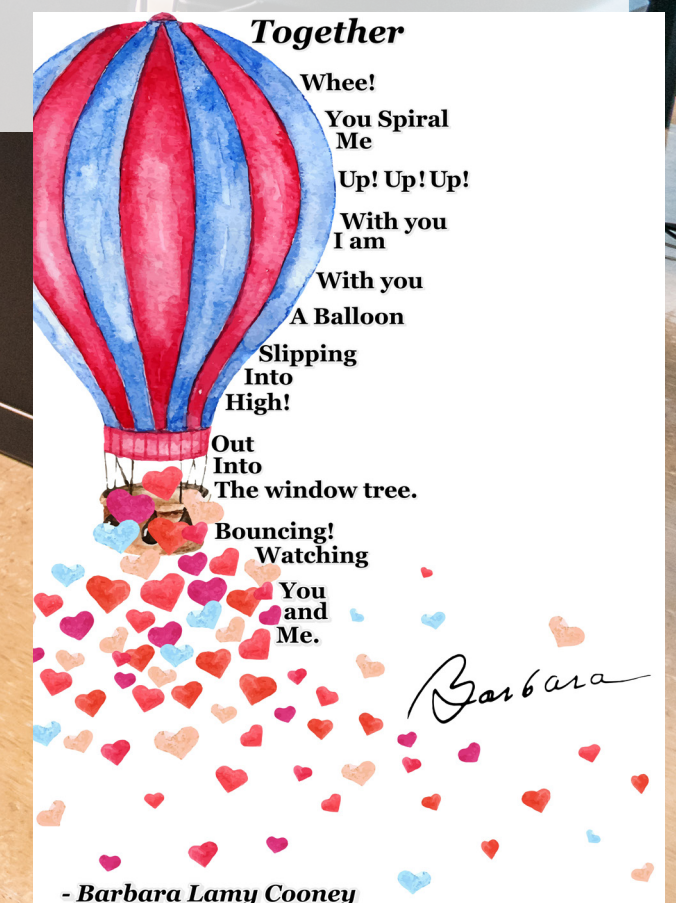 Together
Whee!
You Spiral
Me
Up! Up! Up!
With you
I am
With you
A Balloon
Slipping
Into
High!
Out
Into
The window tree.
Bouncing!
Watching
You
and
Me.
Barbara
- Barbara Lamy Cooney